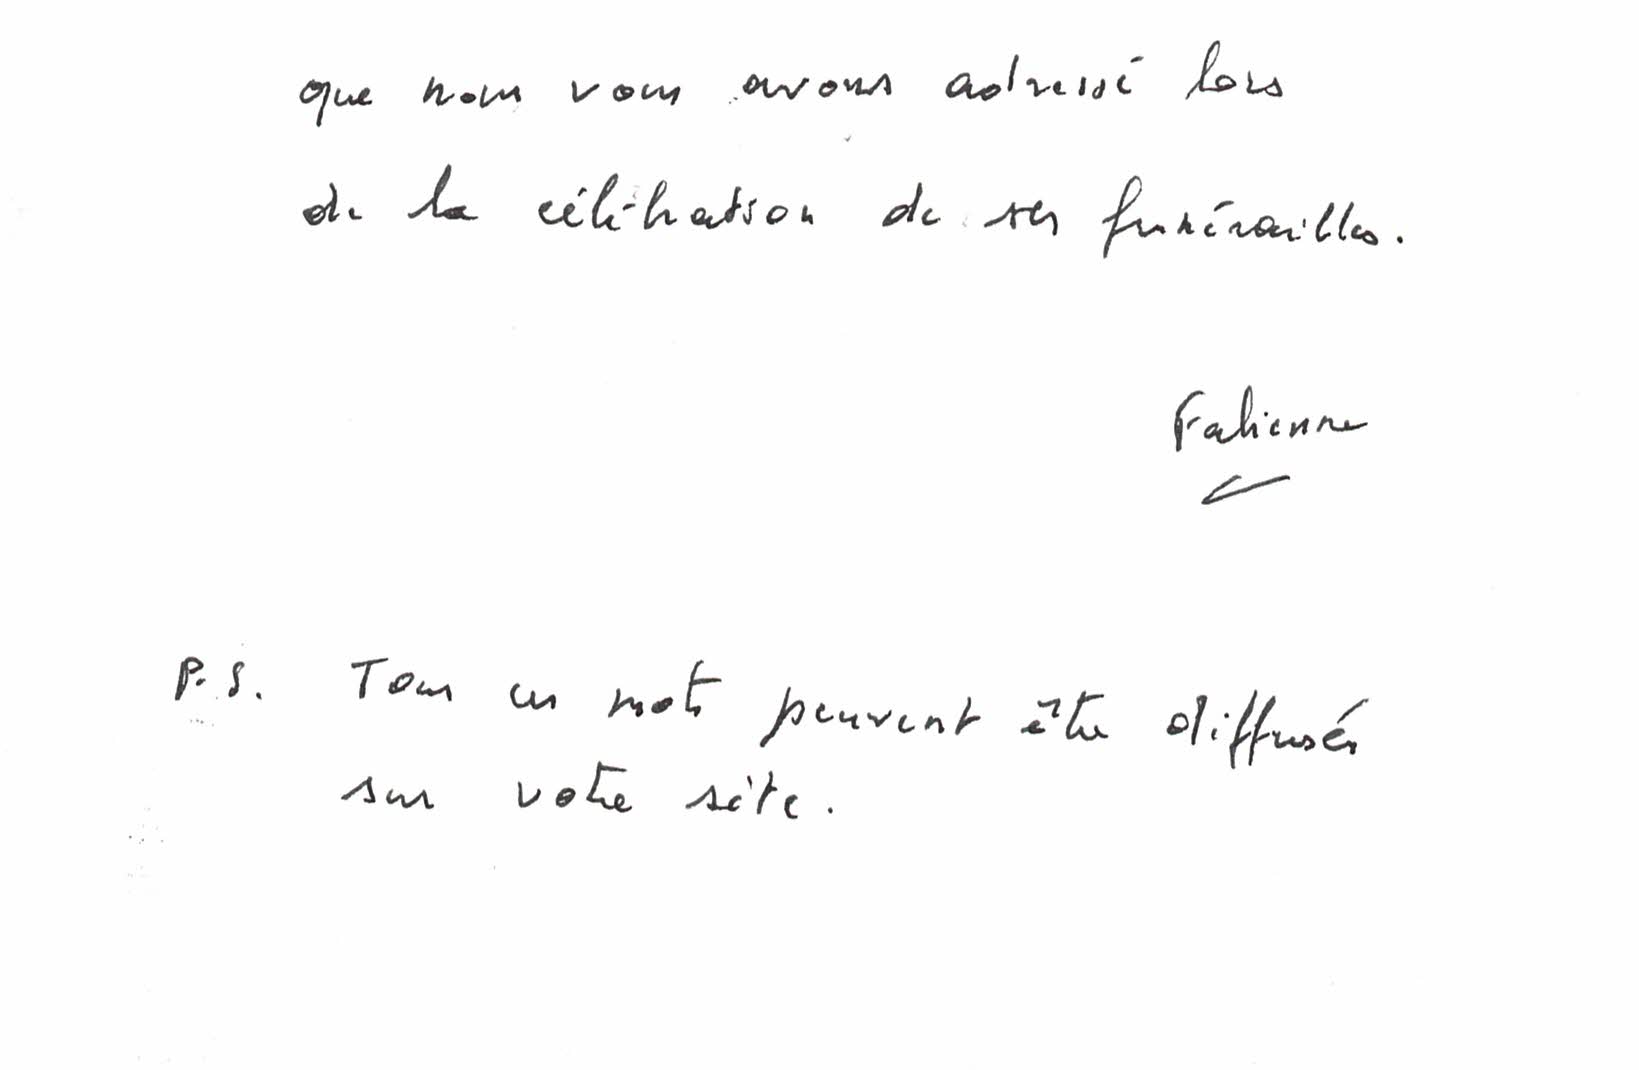 que nous vous avons adressé lors
de la célébration de ses funérailles.
Fabienne
P.S. Tous ces mots peuvent être diffusés
sur votre site.